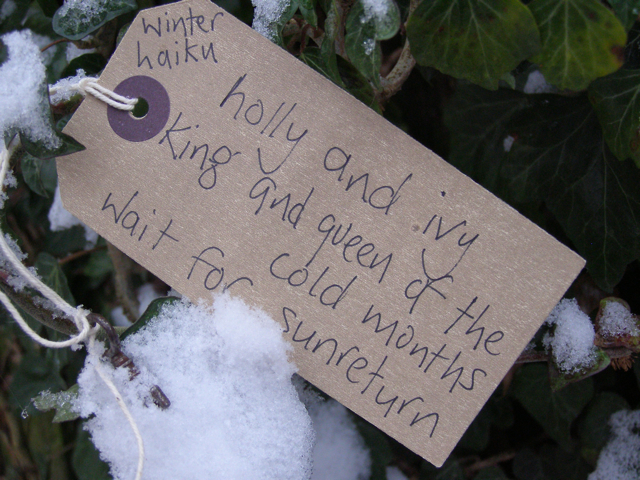 winter
haiku
holly and ivy
King and queen of the
cold months
Wait for sunreturn